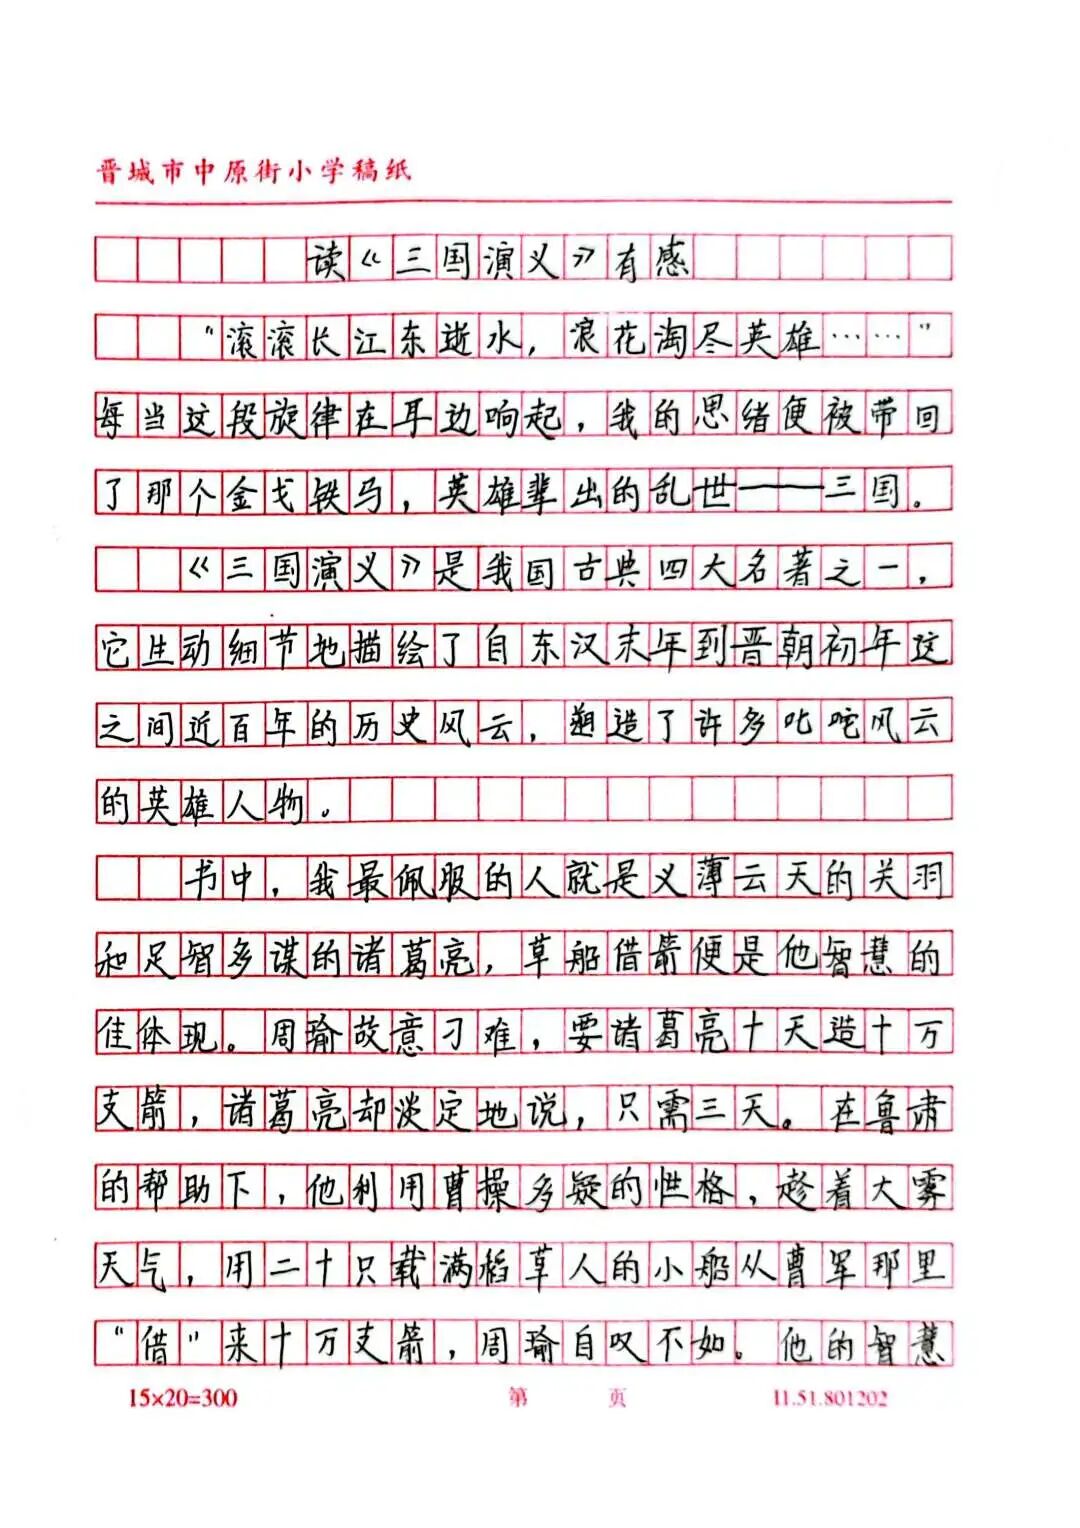 晋城市中原街小学稿纸
读《三国演义》有感
“滚滚长江东逝水，浪花淘尽英雄……”
每当这段旋律在耳边响起，我的思绪便被带回
了那个金戈铁马，英雄辈出的乱世——三国。
《三国演义》是我国古典四大名著之一，
它生动细节地描绘了自东汉末年到晋朝初年这
之间近百年的历史风云，塑造了许多叱咤风云
的英雄人物。
书中，我最佩服的人就是义薄云天的关羽
和足智多谋的诸葛亮，草船借箭便是他智慧的
佳体现。周瑜故意刁难，要诸葛亮十天造十万
支箭，诸葛亮却淡定地说，只需三天。在鲁肃
的帮助下，他利用曹操多疑的性格，趁着大雾
天气，用二十只载满稻草人的小船从曹军那里
“借”来十万支箭，周瑜自叹不如。他的智慧
15×20=300 第 页 11.51.801202